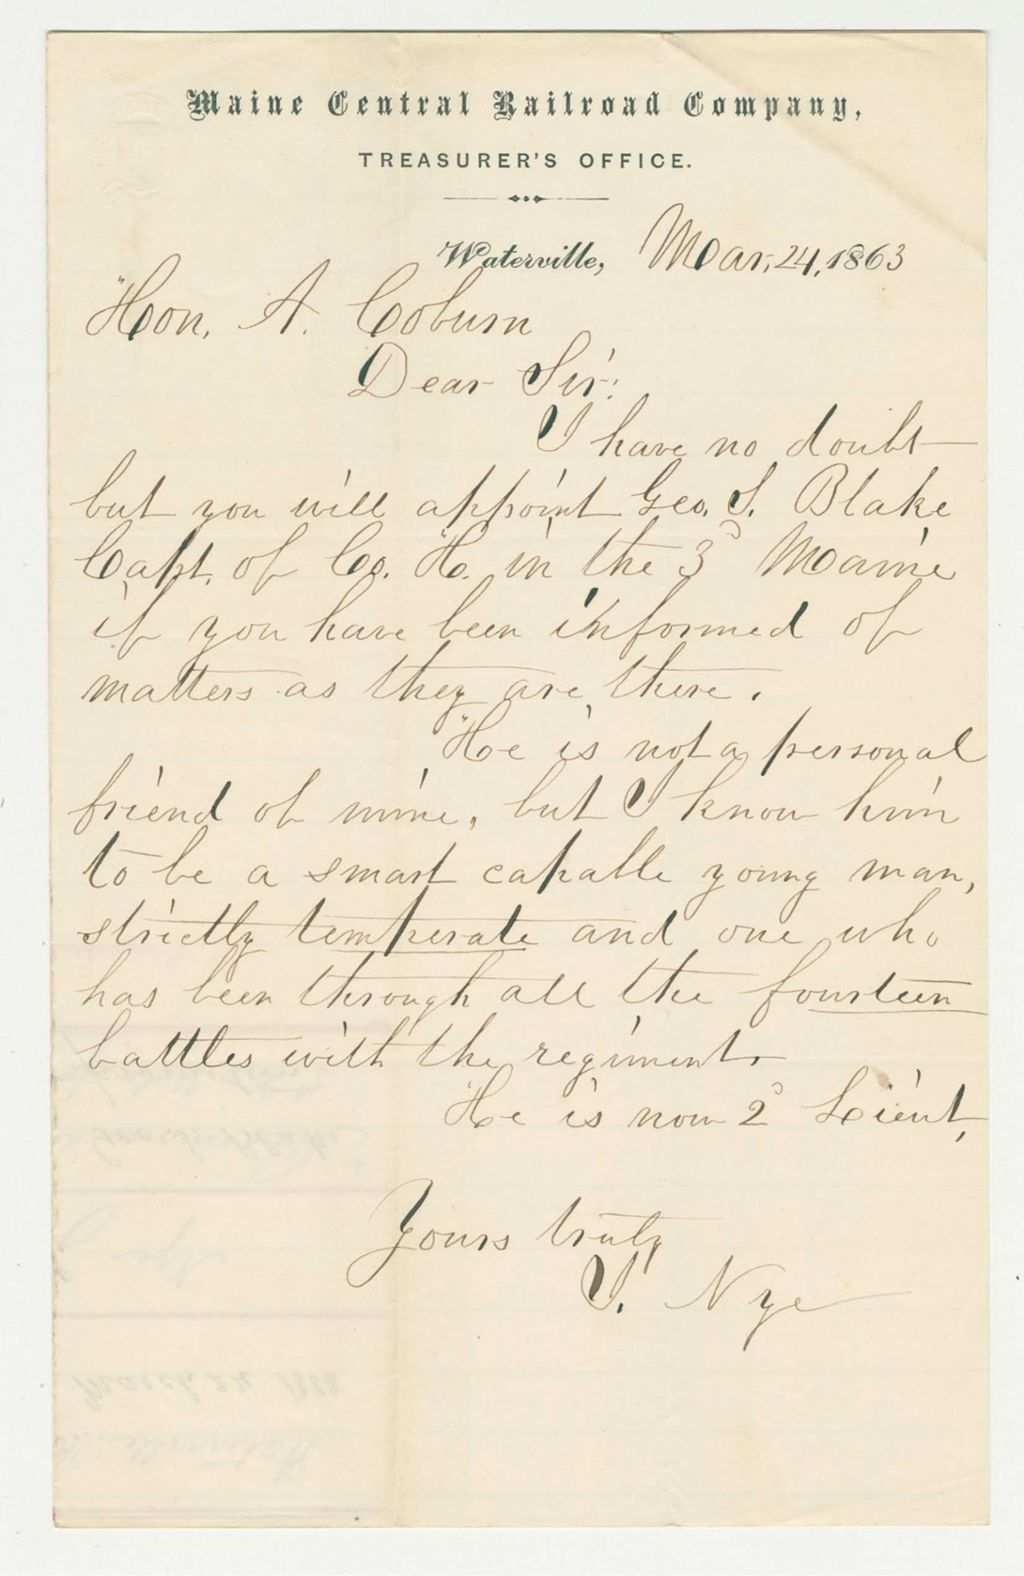 Maine Central Railroad Company,
TREASURER'S OFFICE.
Waterville, Mar. 24, 1863
Hon. A. Coburn
Dear Sir:
I have no doubt
but you will appoint Geo. S. Blake
Capt. of Co. H. in the 3d Maine
if you have been informed of
matters as they are there.
He is not a personal
friend of mine, but I know him
to be a smart capable young man,
strictly temperate and one who
has been through all the fourteen
battles with the regiment.
He is now 2d Lieut,
Yours truly
J. Nye
March 24 1863